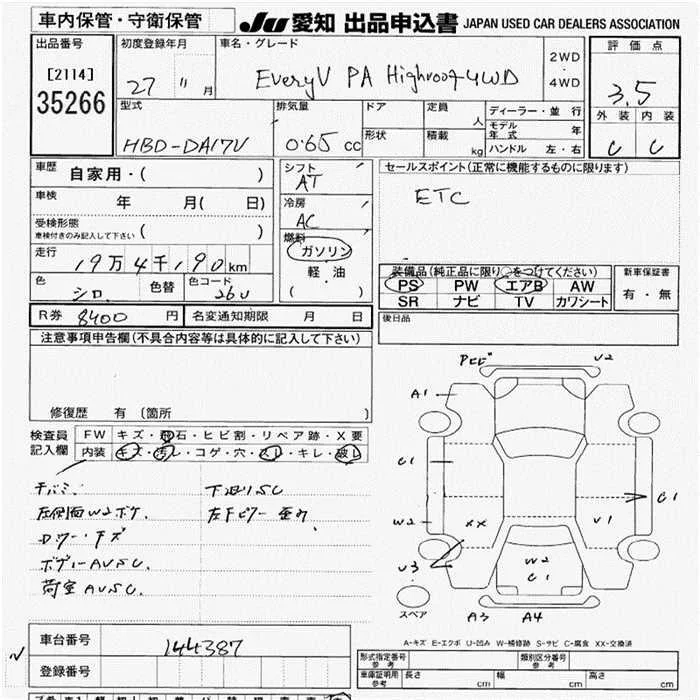 車内保管・守衛保管 JU 愛知 出品申込書 JAPAN USED CAR DEALERS ASSOCIATION
出品番号 初度登録年月 車名・グレード 評価点
[2114] 35266 27 11月 EveryV PA Highroof 4WD 2WD・4WD 3.5
型式 排気量 ドア 定員 人 ディーラー・並行 外装 内装
モデル年式 年
形状 積載 kg ハンドル 左・右
HBD-DA17V 0.65 cc C C
車歴 自家用・( ) シフト AT セールスポイント(正常に機能するものに限ります)
車検 年 月( 日) 冷房 AC ETC
受検形態 ( )
車検付きのみ記入して下さい
燃料 ガソリン
走行 19万4千190km 軽・油
( )
装備品(純正品に限り○をつけてください) 新車保証書
色 シロ 色替 色コード 26U PS PW エアB AW 有・無
SR ナビ TV カワシート
R券 8400 円 名変通知期限 月 日 後日品
注意事項申告欄(不具合内容等は具体的に記入して下さい)
修復歴 有 (箇所 )
検査員記入欄 FW キズ・飛石・ヒビ割・リペア跡・X要
内装 キズ・汚レ・コゲ・穴・スレ・キレ・破レ
下廻りSC
左側面W2ボケ.
ボデーAUSC.
荷室AUSC.
U2
A1
C1
C1
W2 XX U1
U3
W2
C1
スペア A3 A4
A-キズ E-エクボ U-凹み W-補修跡 S-サビ C-腐食 XX-交換済
車台番号 144387
登録番号
形式指定番号 参考 類別区分番号 参考
車庫証明用 参考 長さ cm 幅 cm 高さ cm